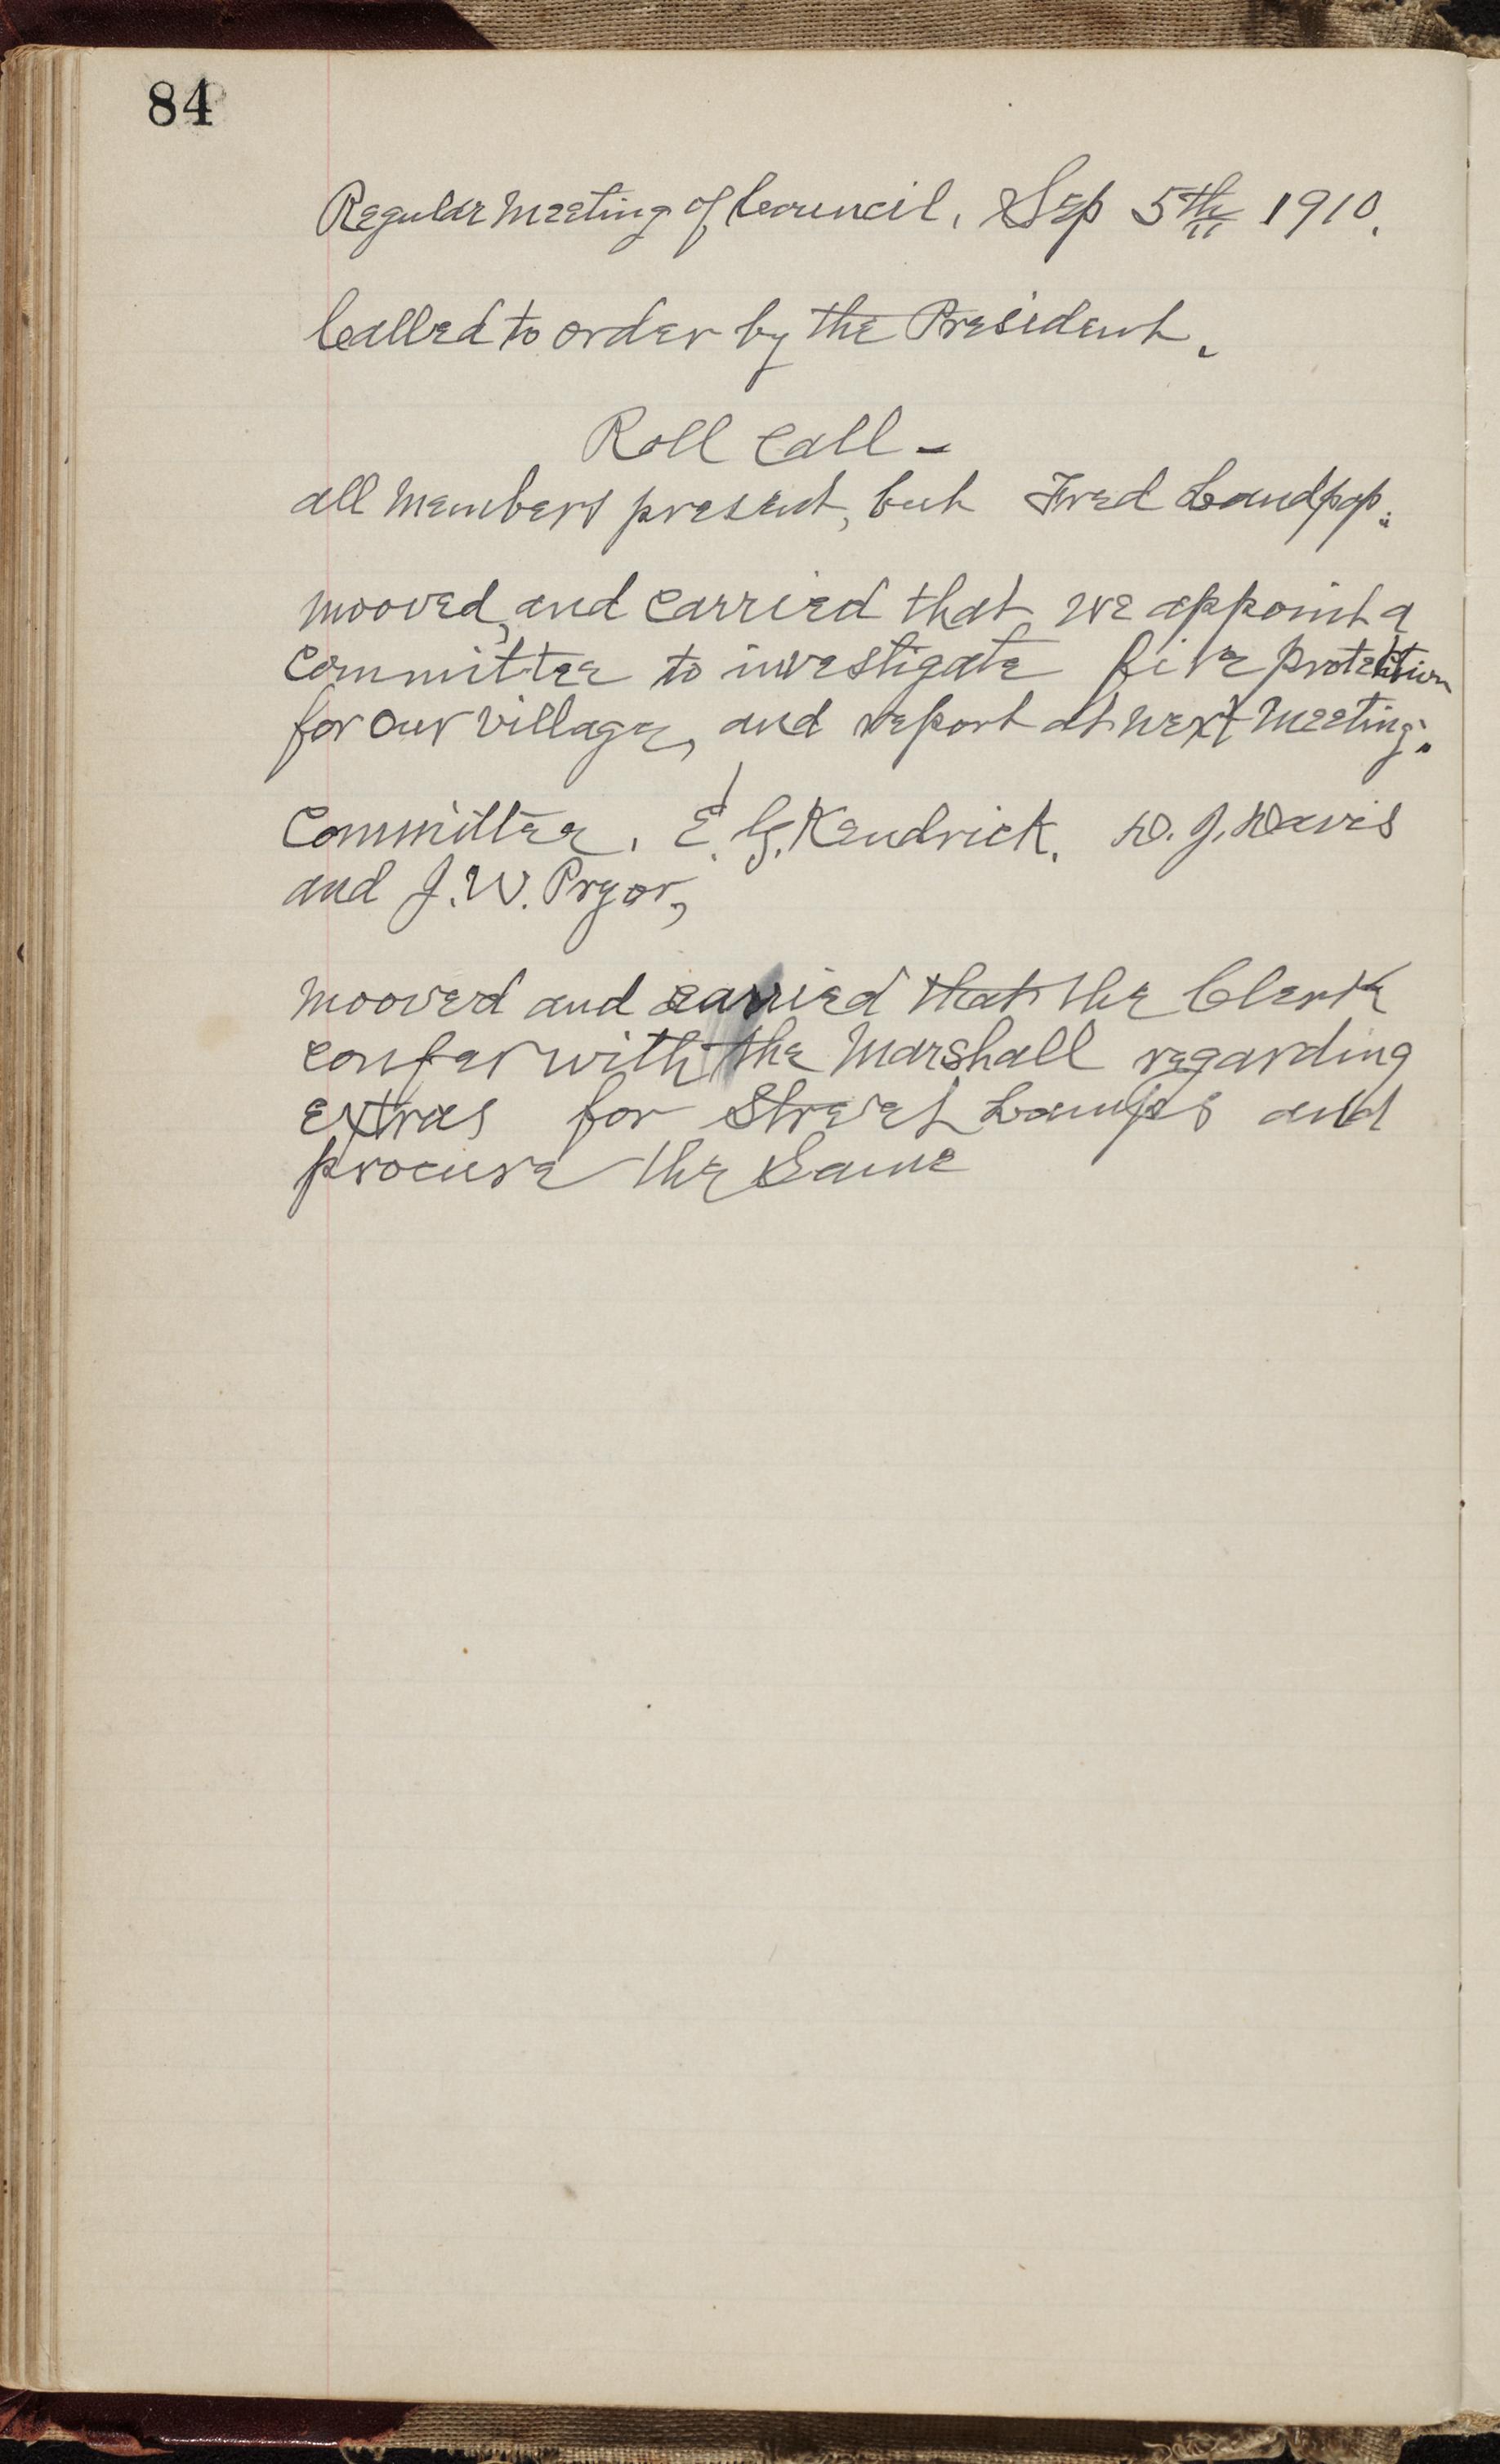 84
Regular Meeting of Council, Sep 5th 1910.
Called to order by the President.
Roll Call -
all Members present, but Fred
mooved, and carried that we appoint a
committee to investigate fire protection
for our village, and report at next Meeting.
Committee. E. G. Kendrick. D. J. Davis
and J. W. Pryor,
mooved and carried that the Clerk
confer with the Marshall regarding
extras for Street Lamps and
procure the Same